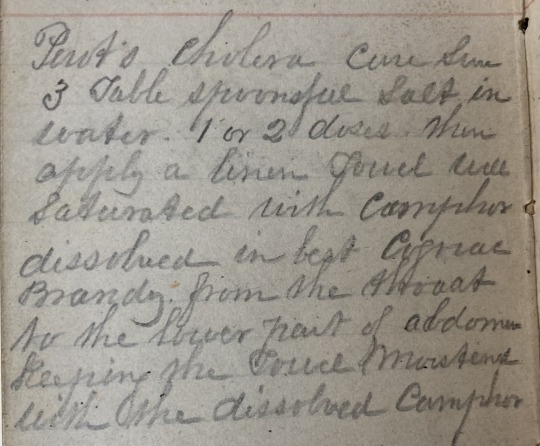 cholera cure
3 Table spoonsful Salt in
water. 1 or 2 doses. then
apply a linen Towel well
Saturated with Camphor
dissolved in best Cognac
Brandy. from the throat
to the lower part of abdomen
Keeping the Towel Moistened
with the dissolved Camphor